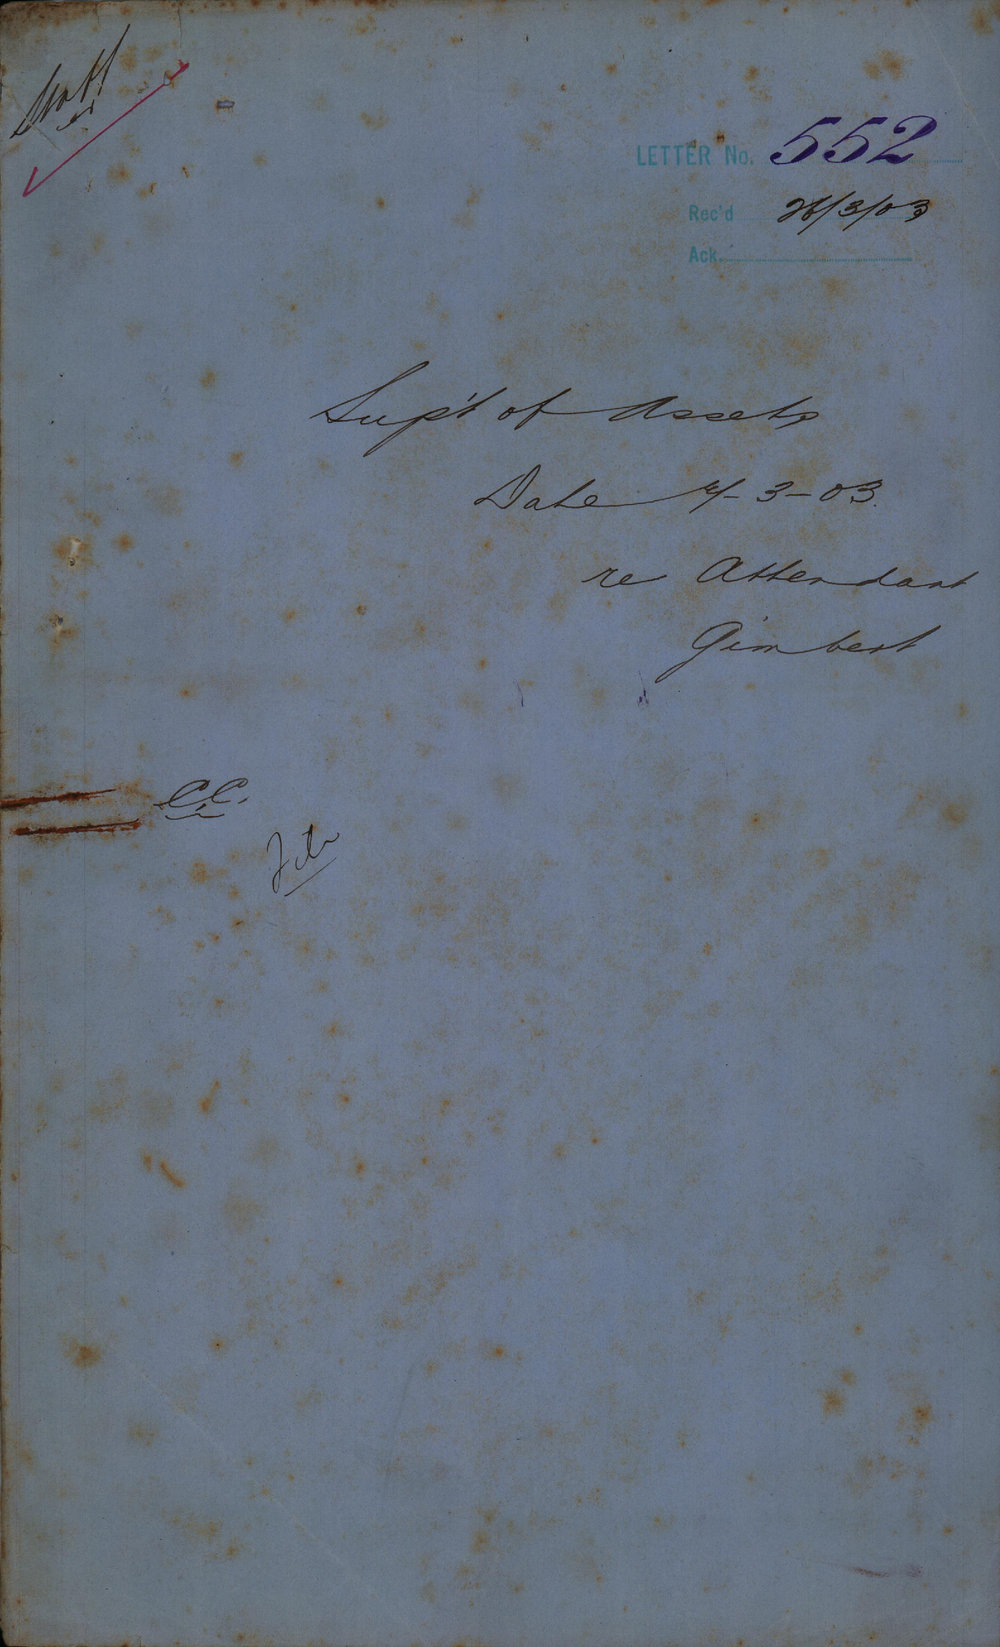 Staff
LETTER No. 552
Rec'd 26/3/03
Ack.
Sup't of Assets
Date 4-3-03.
re Attendant
Gimbert
C.C.
File